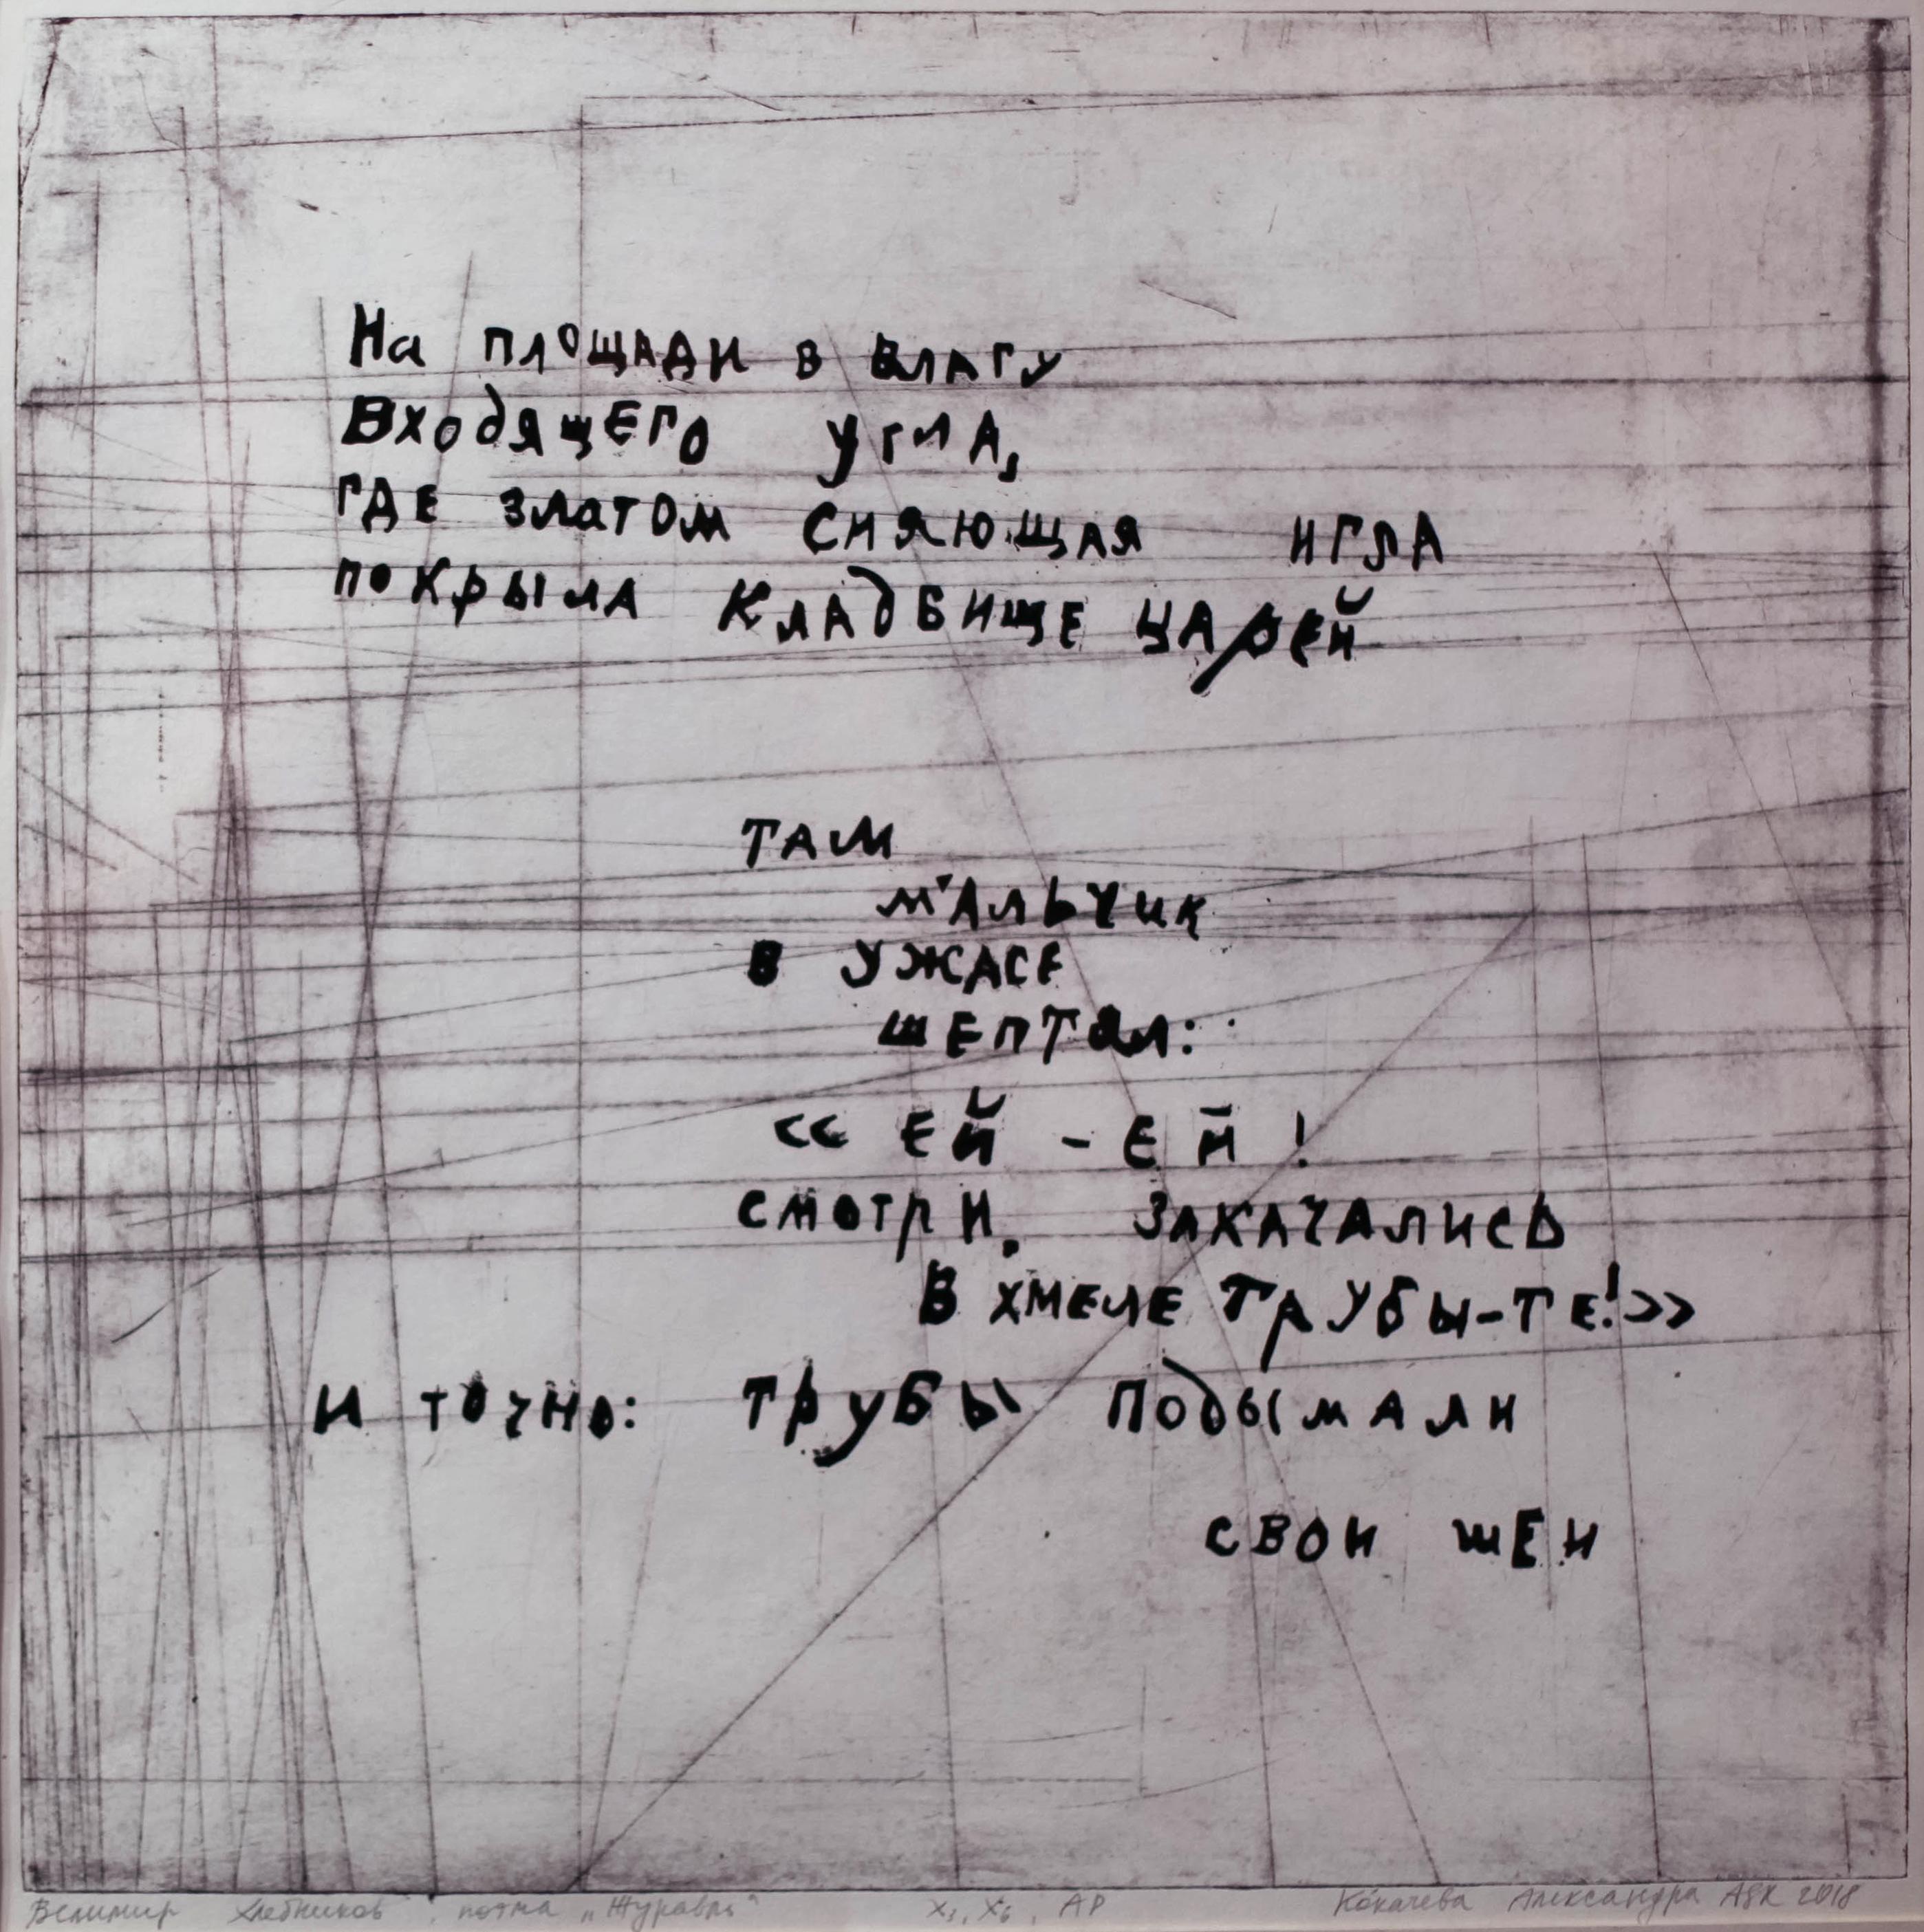 На площади в влагу
входящего угла,
где златом сияющая игла
покрыла кладбище царей
там
мальчик
в ужасе
шептал:
«ей-ей!
смотри, закачались
в хмеле трубы-те!»
и точно: трубы подымали
свои шеи
Велимир Хлебников поэма „Журавль“ X3, X6, AP Кокачева Александра ASK 2018